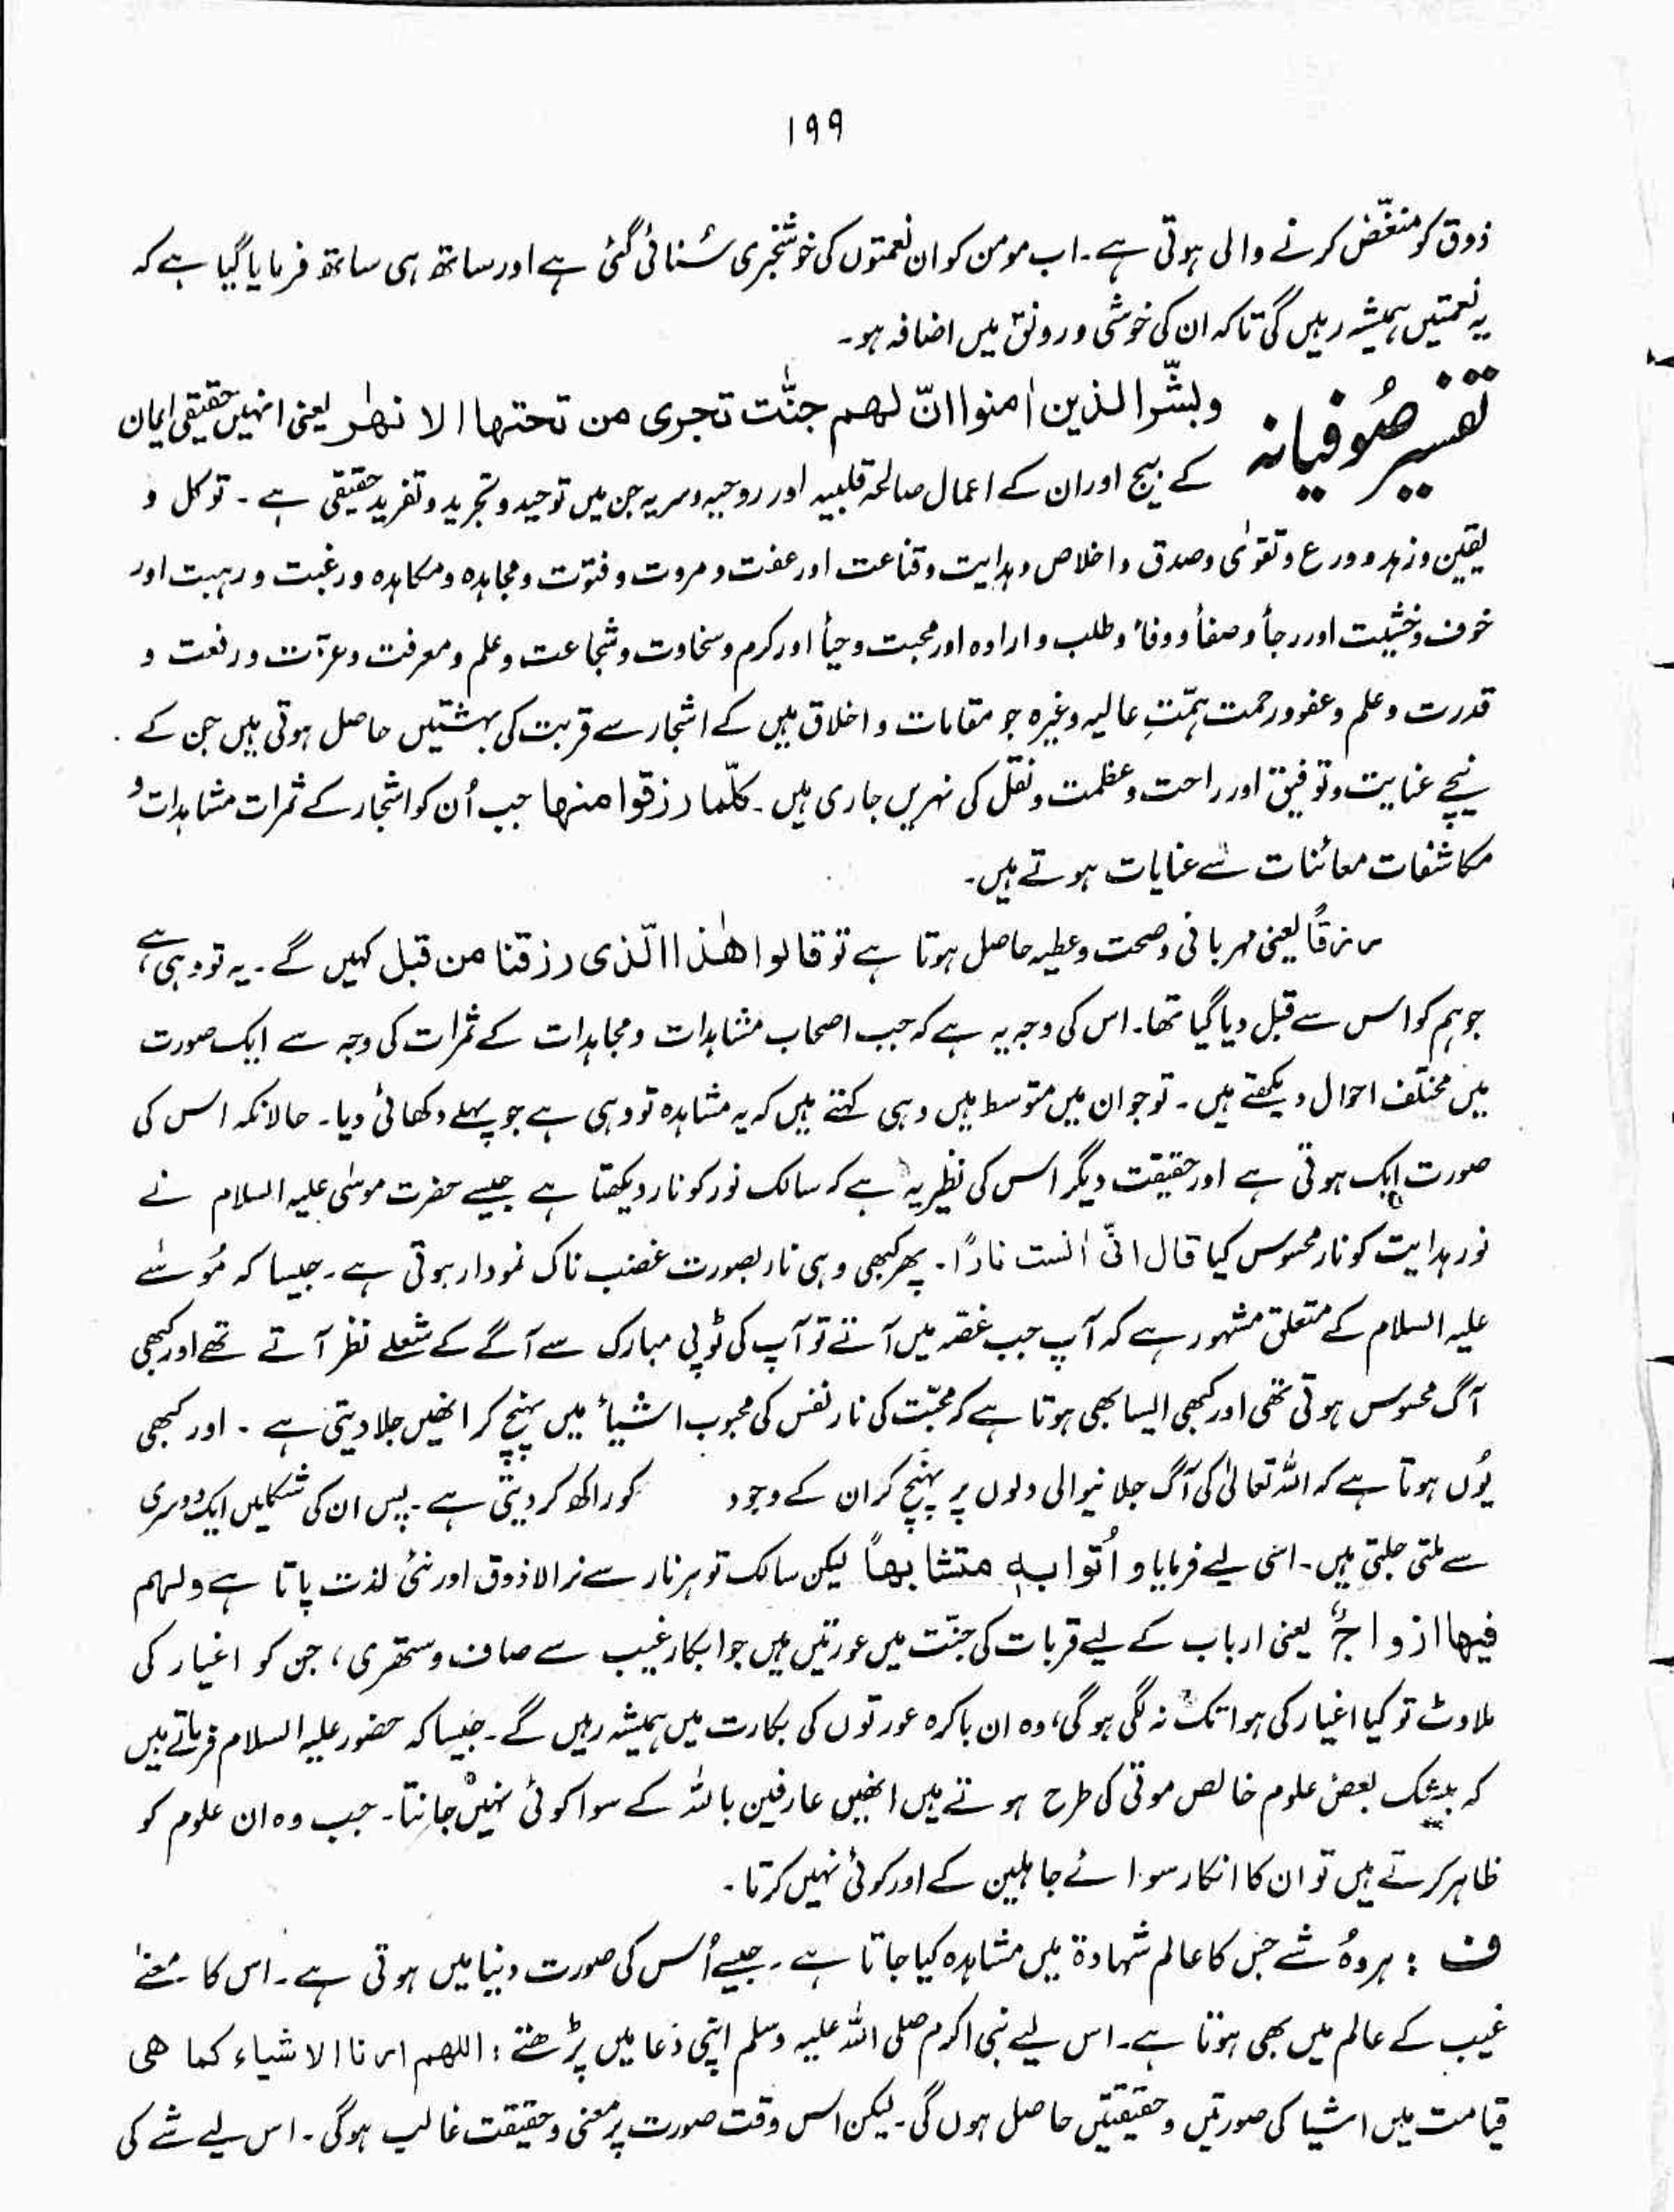 ۱۹۹
ذوق کو منغّض کرنے والی ہوتی ہے۔ اب مومن کو ان نعمتوں کی خوشخبری سُنائی گئی ہے اور ساتھ ہی ساتھ فرمایا گیا ہے کہ
یہ نعمتیں ہمیشہ رہیں گی تاکہ ان کی خوشی و رونق میں اضافہ ہو۔
تفسیر صُوفیانہ وبشّر الذین اٰمنوا انّ لھم جنّٰت تجری من تحتھا الانھٰر یعنی انہیں حقیقی ایمان
کے بیج اور ان کے اعمال صالحہ قلبیہ اور روحیہ و سریہ جن میں توحید و تجرید و تفرید حقیقی ہے ۔ توکل و
یقین و زہد و ورع و تقوٰی و صدق و اخلاص و ہدایت و قناعت اور عفت و مروت و فتوّت و مجاہدہ و مکاہدہ و رغبت و رہبت اور
خوف و خشیت اور رجأ و صفأ و وفأ و طلب و ارادہ اور محبت و حیأ اور کرم و سخاوت و شجاعت و علم و معرفت و عزت و رفعت و
قدرت و علم و عفو و رحمت ہمّتِ عالیہ وغیرہ جو مقامات و اخلاق ہیں کے اشجار سے قربت کی بہشتیں حاصل ہوتی ہیں جن کے
نیچے عنایت و توفیق اور راحت و عظمت و نقل کی نہریں جاری ہیں ۔ کلّما رزقوا منھا جب اُن کو اشجار کے ثمرات مشاہدات و
مکاشفات معائنات سے عنایات ہوتے ہیں۔
رزقًا یعنی مہربانی و صحت و عطیہ حاصل ہوتا ہے تو قالوا ھٰذا الّذی رزقنا من قبل کہیں گے ۔ یہ تو وہی ہے
جو ہم کو اس سے قبل دیا گیا تھا۔ اس کی وجہ یہ ہے کہ جب اصحاب مشاہدات و مجاہدات کے ثمرات کی وجہ سے ایک صورت
میں مختلف احوال دیکھتے ہیں ۔ تو جو ان میں متوسط ہیں وہی کہتے ہیں کہ یہ مشاہدہ تو وہی ہے جو پہلے دکھائی دیا۔ حالانکہ اس کی
صورت ایک ہوتی ہے اور حقیقت دیگر اس کی نظیر یہ ہے کہ سالک نور کو نار دیکھتا ہے جیسے حضرت موسٰی علیہ السلام نے
نور ہدایت کو نار محسوس کیا قال انّی اٰنست نارًا۔ پھر کبھی وہی نار بصورت غضب ناک نمودار ہوتی ہے۔ جیسا کہ مُوسٰے
علیہ السلام کے متعلق مشہور ہے کہ آپ جب غصّہ میں آتے تو آپ کی ٹوپی مبارک سے آگے کے شعلے نظر آتے تھے اور کبھی
آگ محسوس ہوتی تھی اور کبھی ایسا بھی ہوتا ہے کہ محبّت کی نار نفس کی محبوب اشیأ میں پہنچ کر انھیں جلا دیتی ہے ۔ اور کبھی
یُوں ہوتا ہے کہ اللہ تعالیٰ کی آگ جلانیوالی دلوں پر پہنچ کر ان کے وجود کو راکھ کر دیتی ہے ۔ پس ان کی شکلیں ایک دوسری
سے ملتی جلتی ہیں ۔ اسی لیے فرمایا و اُتوا بہٖ متشابھاً لیکن سالک تو ہر نار سے نرالا ذوق اور نئی لذت پاتا ہے ولہم
فیھا ازواجٌ یعنی ارباب کے لیے قربات کی جنّت میں عورتیں ہیں جو ابکار غیب سے صاف و ستھری ، جن کو اغیار کی
ملاوٹ تو کیا اغیار کی ہوا تک نہ لگی ہوگی، وہ ان باکرہ عورتوں کی بکارت میں ہمیشہ رہیں گے ۔ جیسا کہ حضور علیہ السلام فرماتے ہیں
کہ بیشک بعض علوم خالص موتی کی طرح ہوتے ہیں انھیں عارفین باللہ کے سوا کوئی نہیں جانتا۔ جب وہ ان علوم کو
ظاہر کرتے ہیں تو ان کا انکار سوائے جاہلین کے اور کوئی نہیں کرتا ۔
ف : ہر وہُ شے جس کا عالم شہادۃ میں مشاہدہ کیا جاتا ہے ۔ جیسے اُس کی صورت دنیا میں ہوتی ہے ۔ اس کا معنےٰ
غیب کے عالم میں بھی ہوتا ہے۔ اس لیے نبی اکرم صلی اللہ علیہ وسلم اپنی دُعا میں پڑھتے : اللھم ارنا الاشیاء کما ھی
قیامت میں اشیا کی صورتیں و حقیقتیں حاصل ہوں گی ۔ لیکن اس وقت صورت پر معنی و حقیقت غالب ہوگی ۔ اس لیے شے کی